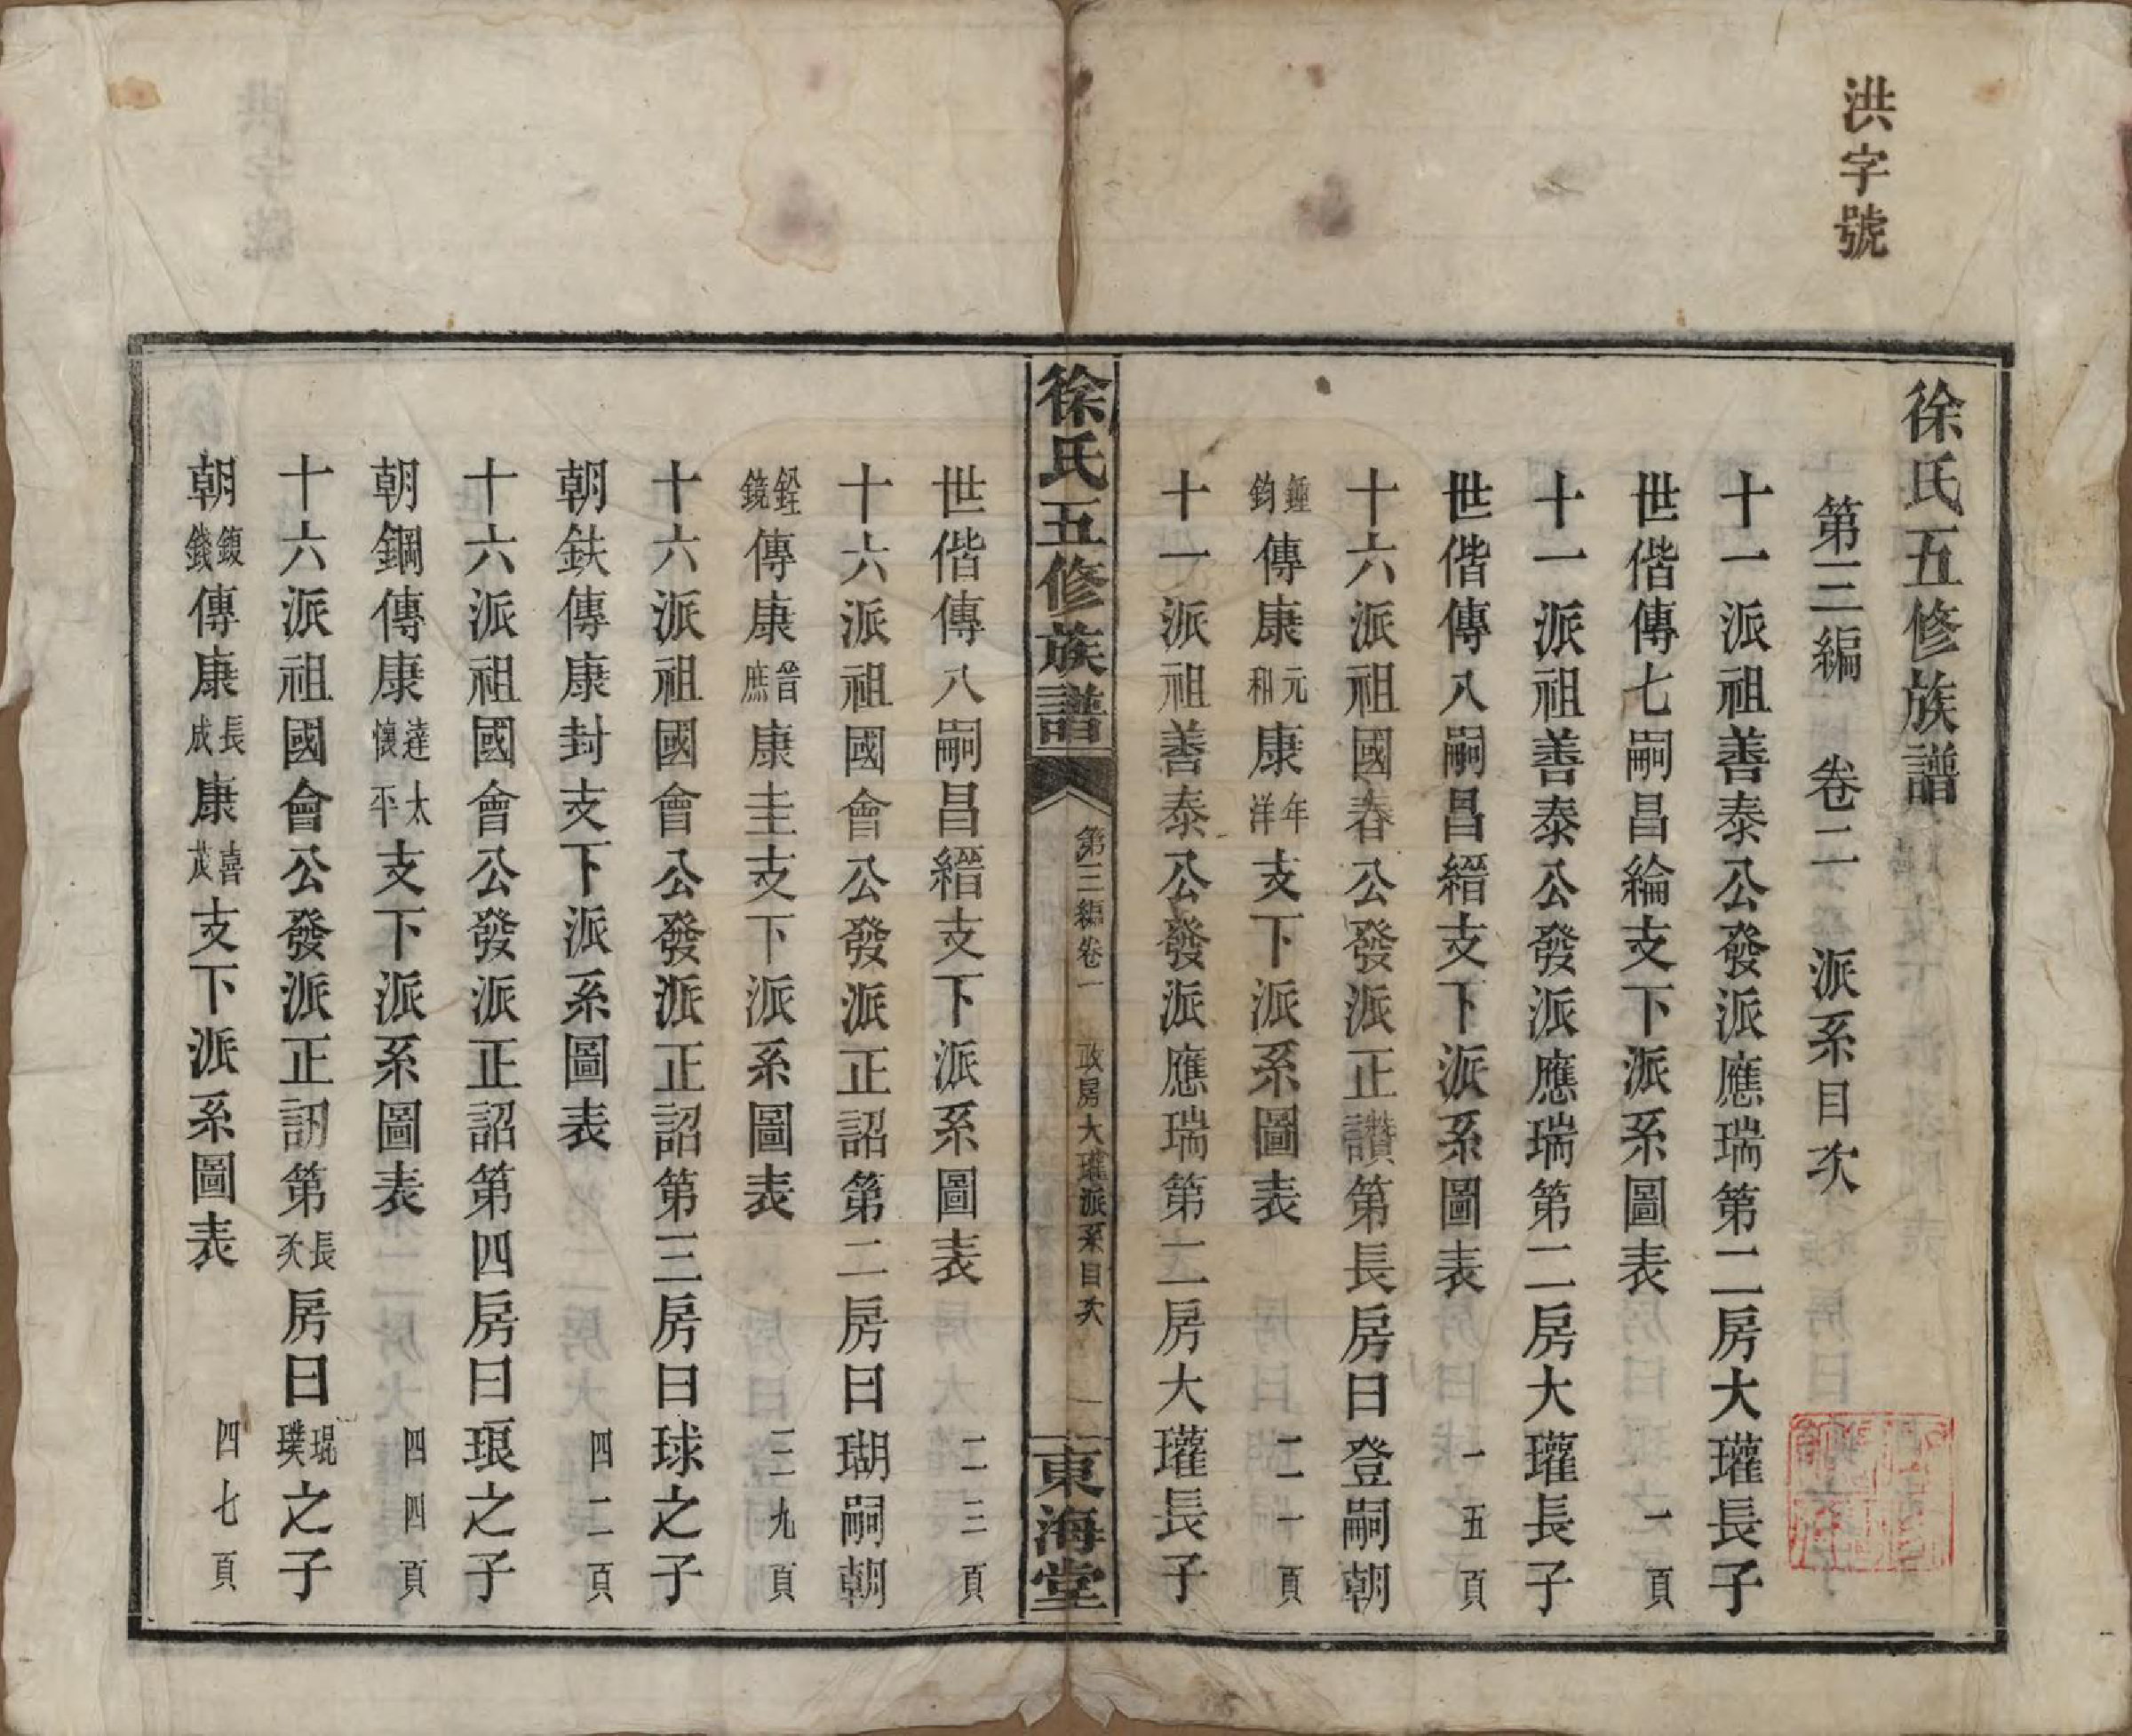 洪字號
徐氏五修族譜
第三編 卷二 派系目次
十一派祖善泰公發派應瑞第二房大瓘長子
世偕傳七嗣昌綸支下派系圖表 一頁
十一派祖善泰公發派應瑞第二房大瓘長子
世偕傳八嗣昌縉支下派系圖表 一五頁
十六派祖國春公發派正讚第長房曰登嗣朝
鍾鈞傳康元和康年洋支下派系圖表 二一頁
十一派祖善泰公發派應瑞第二房大瓘長子
徐氏五修族譜 第三編卷一 政房大瓘派系目次 一 東海堂
世偕傳八嗣昌縉支下派系圖表 二三頁
十六派祖國會公發派正詔第二房曰瑚嗣朝
銓鏡傳康晉庶康圭支下派系圖表 三九頁
十六派祖國會公發派正詔第三房曰球之子
朝鈇傳康封支下派系圖表 四二頁
十六派祖國會公發派正詔第四房曰琅之子
朝鋼傳康達懷太平支下派系圖表 四四頁
十六派祖國會公發派正訒第長次房曰琨璞之子
朝鍑錢傳康長成康喜茂支下派系圖表 四七頁